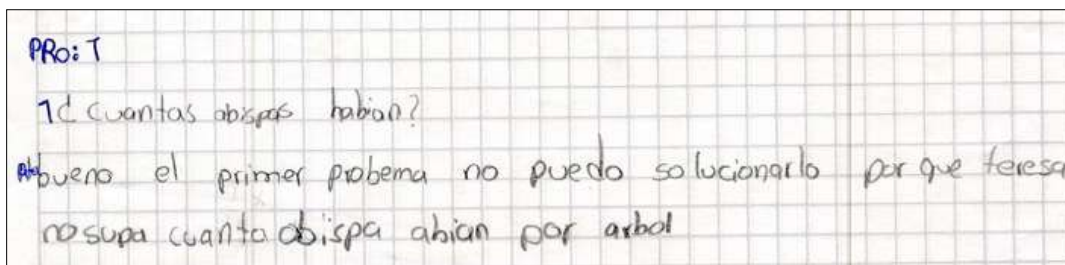 PRo: T
1¿ cuantas abispas habian?
bueno el primer probema no puedo solucionarlo por que teresa
no supa cuanta abispa abian por arbol